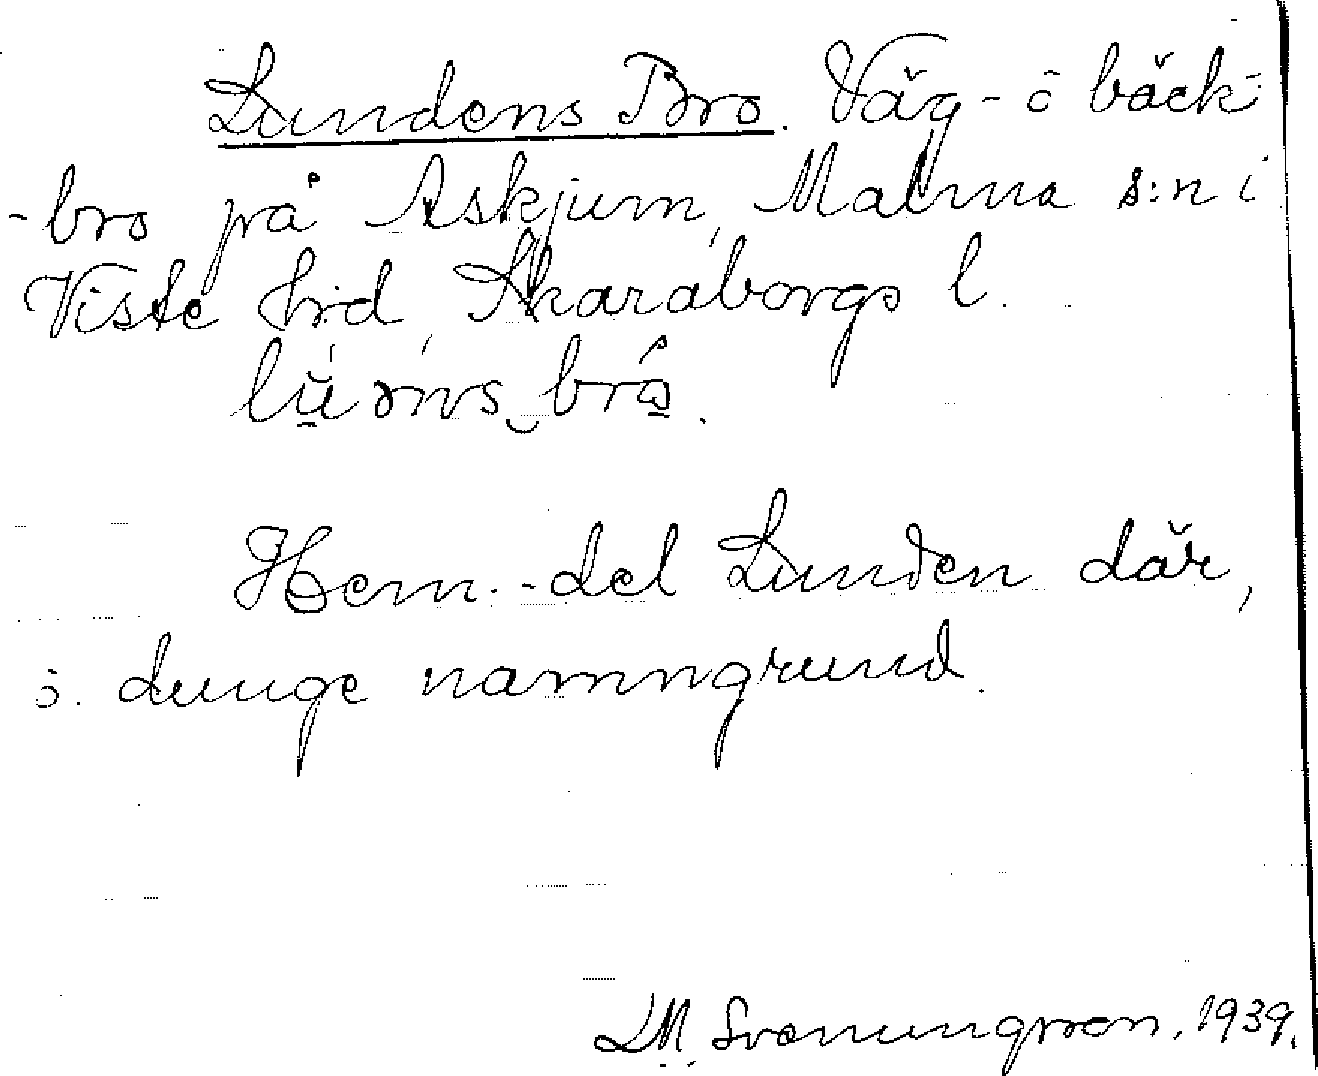 Lundens Bro. Väg- ö bäck-
-bro på Askjum, Malma s:n i
Viste hrd, Skaraborgs l.
Hem.-del Lunden där,
ö. dunge namngrund.
LM. Svenungsson. 1939.